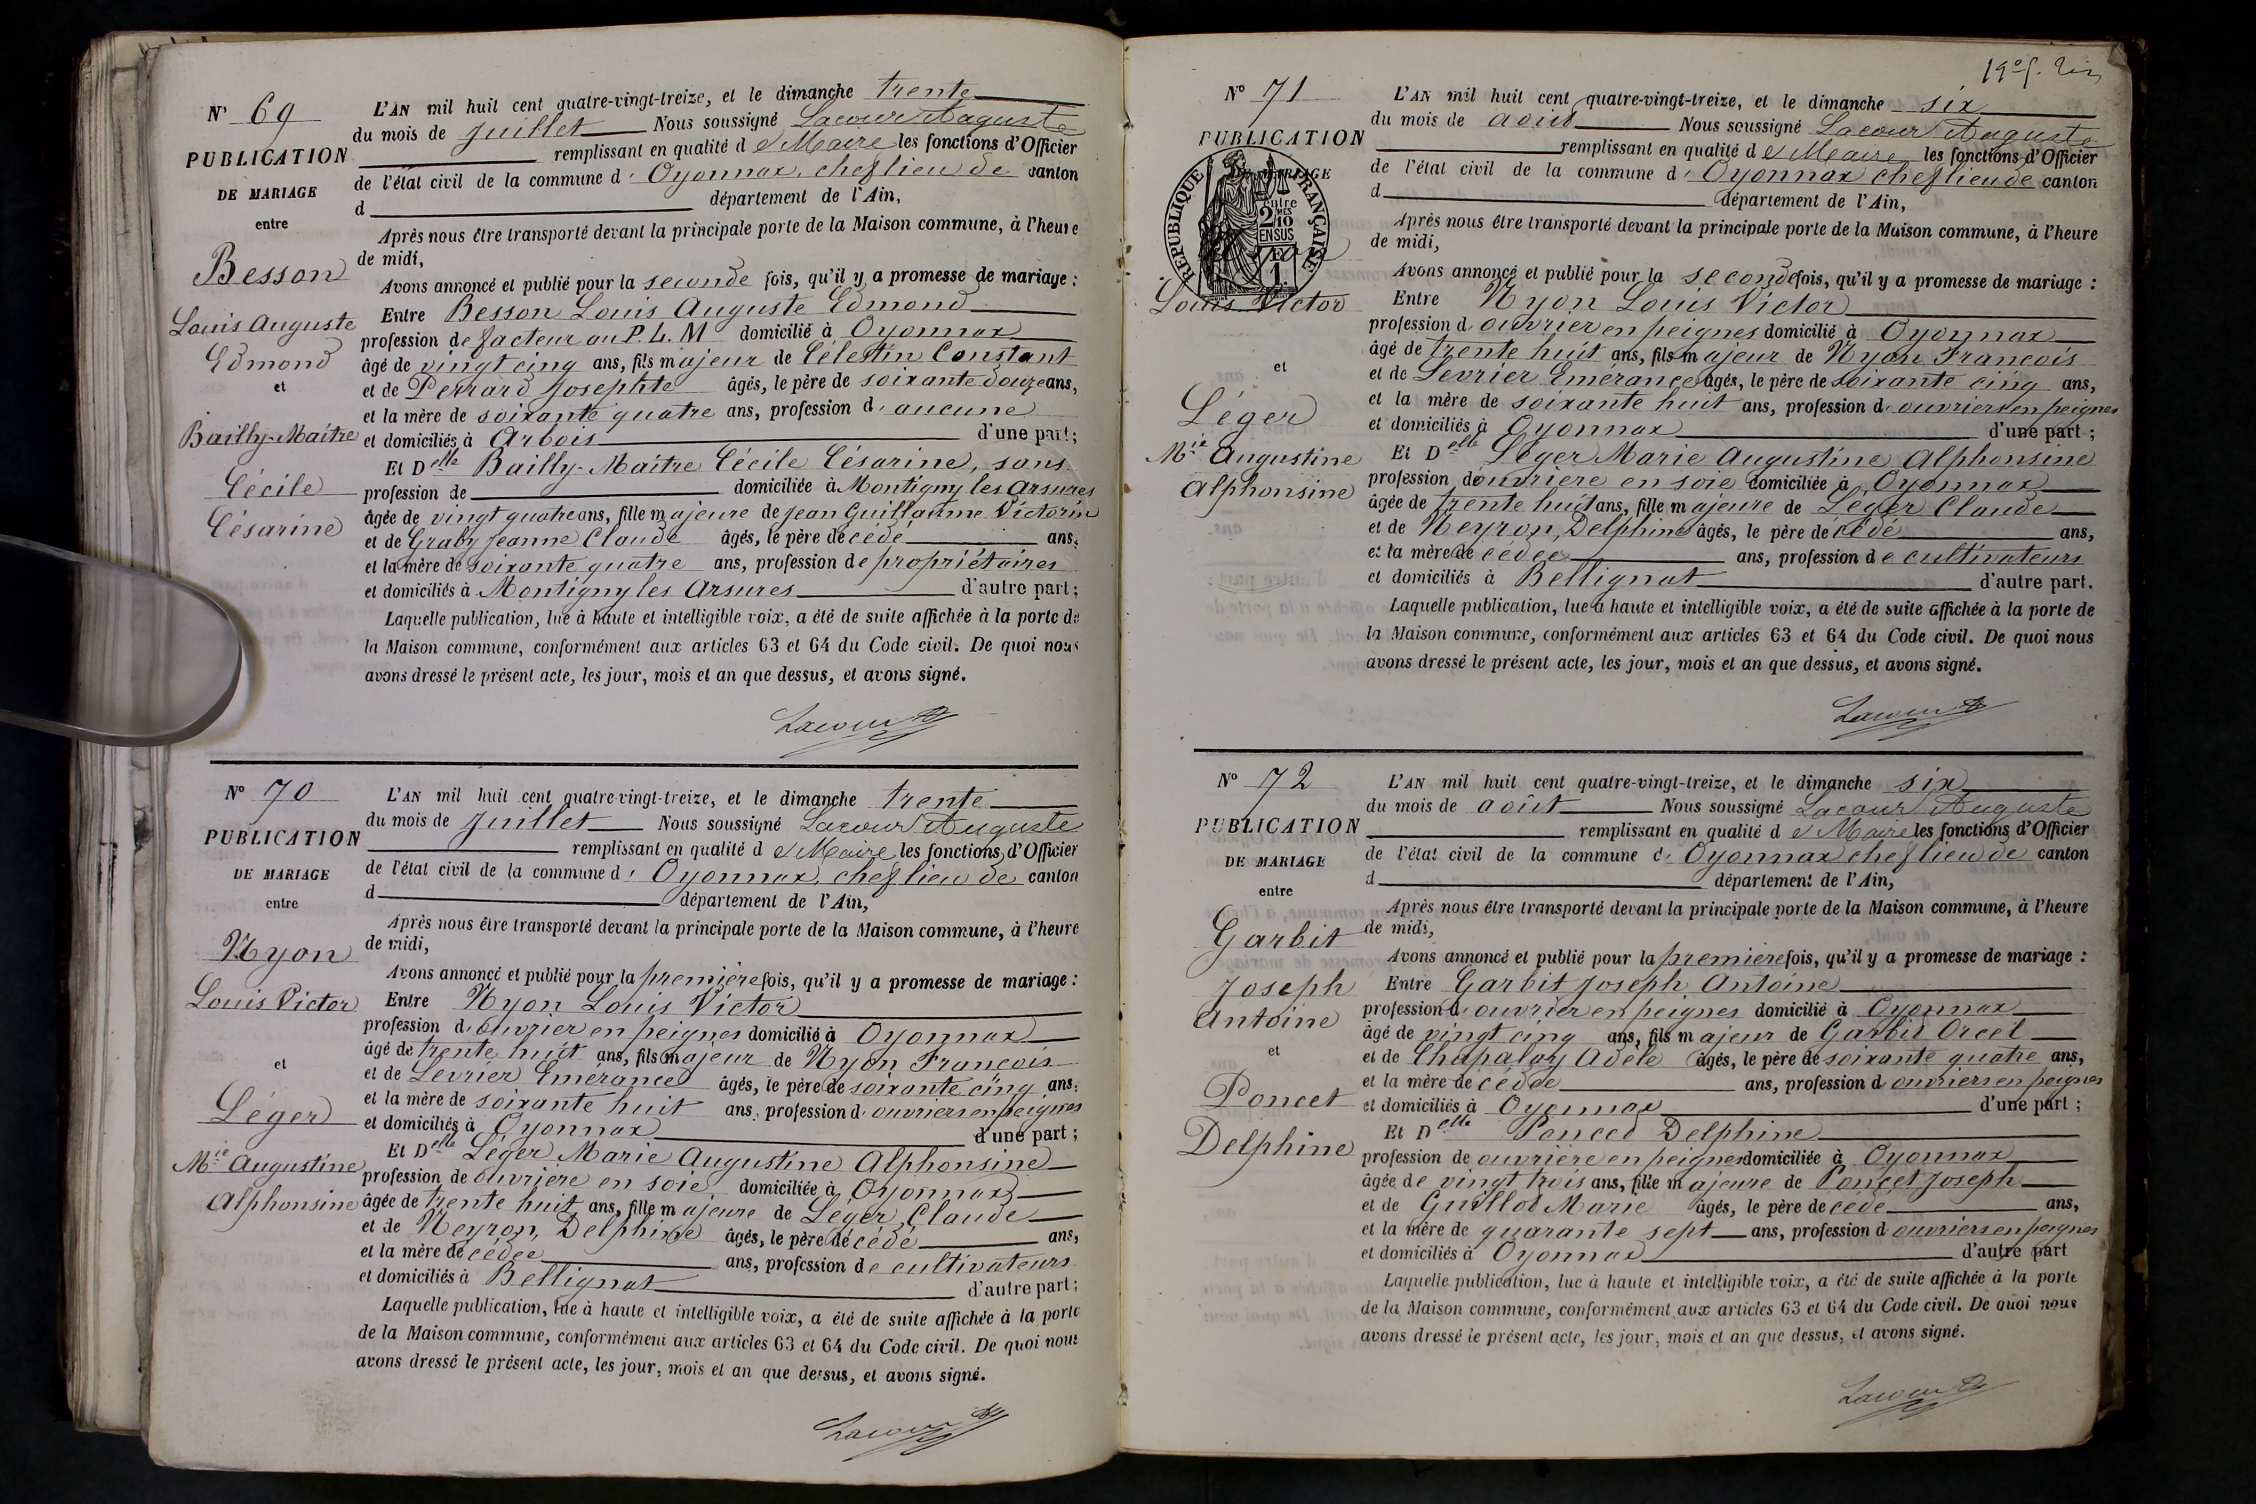 N° 69
PUBLICATION
DE MARIAGE
entre
Besson
Louis Auguste
Edmond
et
Bailly-Maître
Cécile
Césarine
L'AN mil huit cent quatre-vingt-treize, et le dimanche trente
du mois de Juillet Nous soussigné Lacour Auguste
remplissant en qualité de Maire les fonctions d'Officier
de l'état civil de la commune d' Oyonnax, chef lieu de canton
d département de l'Ain,
Après nous être transporté devant la principale porte de la Maison commune, à l'heure
de midi,
Avons annoncé et publié pour la seconde fois, qu'il y a promesse de mariage :
Entre Besson Louis Auguste Edmond
profession de facteur au P. L. M domicilié à Oyonnax
âgé de vingt cinq ans, fils majeur de Célestin Constant
et de Perrard Josephte âgés, le père de soixante douze ans,
et la mère de soixante quatre ans, profession d' aucune
et domiciliés à Arbois d'une part ;
Et Delle Bailly-Maître Cécile Césarine, sans
profession de domiciliée à Montigny les Arsures
âgée de vingt quatre ans, fille majeure de Jean Guillaume Victorin
et de Graby Jeanne Claude âgés, le père décédé ans,
et la mère de soixante quatre ans, profession de propriétaires
et domiciliés à Montigny les Arsures d'autre part ;
Laquelle publication, lue à haute et intelligible voix, a été de suite affichée à la porte de
la Maison commune, conformément aux articles 63 et 64 du Code civil. De quoi nous
avons dressé le présent acte, les jour, mois et an que dessus, et avons signé.
Lacour A
N° 70
PUBLICATION
DE MARIAGE
entre
Nyon
Louis Victor
et
Léger
Mie Augustine
Alphonsine
L'AN mil huit cent quatre-vingt-treize, et le dimanche trente
du mois de Juillet Nous soussigné Lacour Auguste
remplissant en qualité de Maire les fonctions d'Officier
de l'état civil de la commune d' Oyonnax, chef lieu de canton
d département de l'Ain,
Après nous être transporté devant la principale porte de la Maison commune, à l'heure
de midi,
Avons annoncé et publié pour la première fois, qu'il y a promesse de mariage :
Entre Nyon Louis Victor
profession d'ouvrier en peignes domicilié à Oyonnax
âgé de trente huit ans, fils majeur de Nyon François
et de Levrier Emérance âgés, le père de soixante cinq ans,
et la mère de soixante huit ans, profession d' ouvriers en peignes
et domiciliés à Oyonnax d'une part ;
Et Delle Léger Marie Augustine Alphonsine
profession de ouvrière en soie domiciliée à Oyonnax
âgée de trente huit ans, fille majeure de Léger Claude
et de Neyron, Delphine âgés, le père décédé ans,
et la mère décédée ans, profession de cultivateurs
et domiciliés à Bellignat d'autre part ;
Laquelle publication, lue à haute et intelligible voix, a été de suite affichée à la porte
de la Maison commune, conformément aux articles 63 et 64 du Code civil. De quoi nous
avons dressé le présent acte, les jour, mois et an que dessus, et avons signé.
Lacour A
N° 71
PUBLICATION
RÉPUBLIQUE FRANÇAISE
entre
2 MES
10
EN SUS
Louis Victor
et
Léger
Mie Augustine
Alphonsine
L'AN mil huit cent quatre-vingt-treize, et le dimanche six
du mois de août Nous soussigné Lacour Auguste
remplissant en qualité de Maire les fonctions d'Officier
de l'état civil de la commune d' Oyonnax chef lieu de canton
d département de l'Ain,
Après nous être transporté devant la principale porte de la Maison commune, à l'heure
de midi,
Avons annoncé et publié pour la seconde fois, qu'il y a promesse de mariage :
Entre Nyon Louis Victor
profession d' ouvrier en peignes domicilié à Oyonnax
âgé de trente huit ans, fils majeur de Nyon François
et de Levrier Emérance âgés, le père de soixante cinq ans,
et la mère de soixante huit ans, profession d' ouvriers en peignes
et domiciliés à Oyonnax d'une part ;
Et Delle Léger Marie Augustine Alphonsine
profession d'ouvrière en soie domiciliée à Oyonnax
âgée de trente huit ans, fille majeure de Léger Claude
et de Neyron, Delphine âgés, le père décédé ans,
et la mère décédée ans, profession de cultivateurs
et domiciliés à Bellignat d'autre part.
Laquelle publication, lue à haute et intelligible voix, a été de suite affichée à la porte de
la Maison commune, conformément aux articles 63 et 64 du Code civil. De quoi nous
avons dressé le présent acte, les jour, mois et an que dessus, et avons signé.
Lacour A
N° 72
PUBLICATION
DE MARIAGE
entre
Garbit
Joseph
Antoine
et
Poncet
Delphine
L'AN mil huit cent quatre-vingt-treize, et le dimanche six
du mois de août Nous soussigné Lacour Auguste
remplissant en qualité de Maire les fonctions d'Officier
de l'état civil de la commune d' Oyonnax chef lieu de canton
d département de l'Ain,
Après nous être transporté devant la principale porte de la Maison commune, à l'heure
de midi,
Avons annoncé et publié pour la première fois, qu'il y a promesse de mariage :
Entre Garbit Joseph Antoine
profession d' ouvrier en peignes domicilié à Oyonnax
âgé de vingt cinq ans, fils majeur de Garbit Orcet
et de Chapalay Adèle âgés, le père de soixante quatre ans,
et la mère décédée ans, profession d ouvriers en peignes
et domiciliés à Oyonnax d'une part ;
Et Delle Poncet Delphine
profession de ouvrière en peignes domiciliée à Oyonnax
âgée de vingt trois ans, fille majeure de Poncet Joseph
et de Guillod Marie âgés, le père décédé ans,
et la mère de quarante sept ans, profession d ouvriers en peignes
et domiciliés à Oyonnax d'autre part
Laquelle publication, lue à haute et intelligible voix, a été de suite affichée à la porte
de la Maison commune, conformément aux articles 63 et 64 du Code civil. De quoi nous
avons dressé le présent acte, les jour, mois et an que dessus, et avons signé.
Lacour A